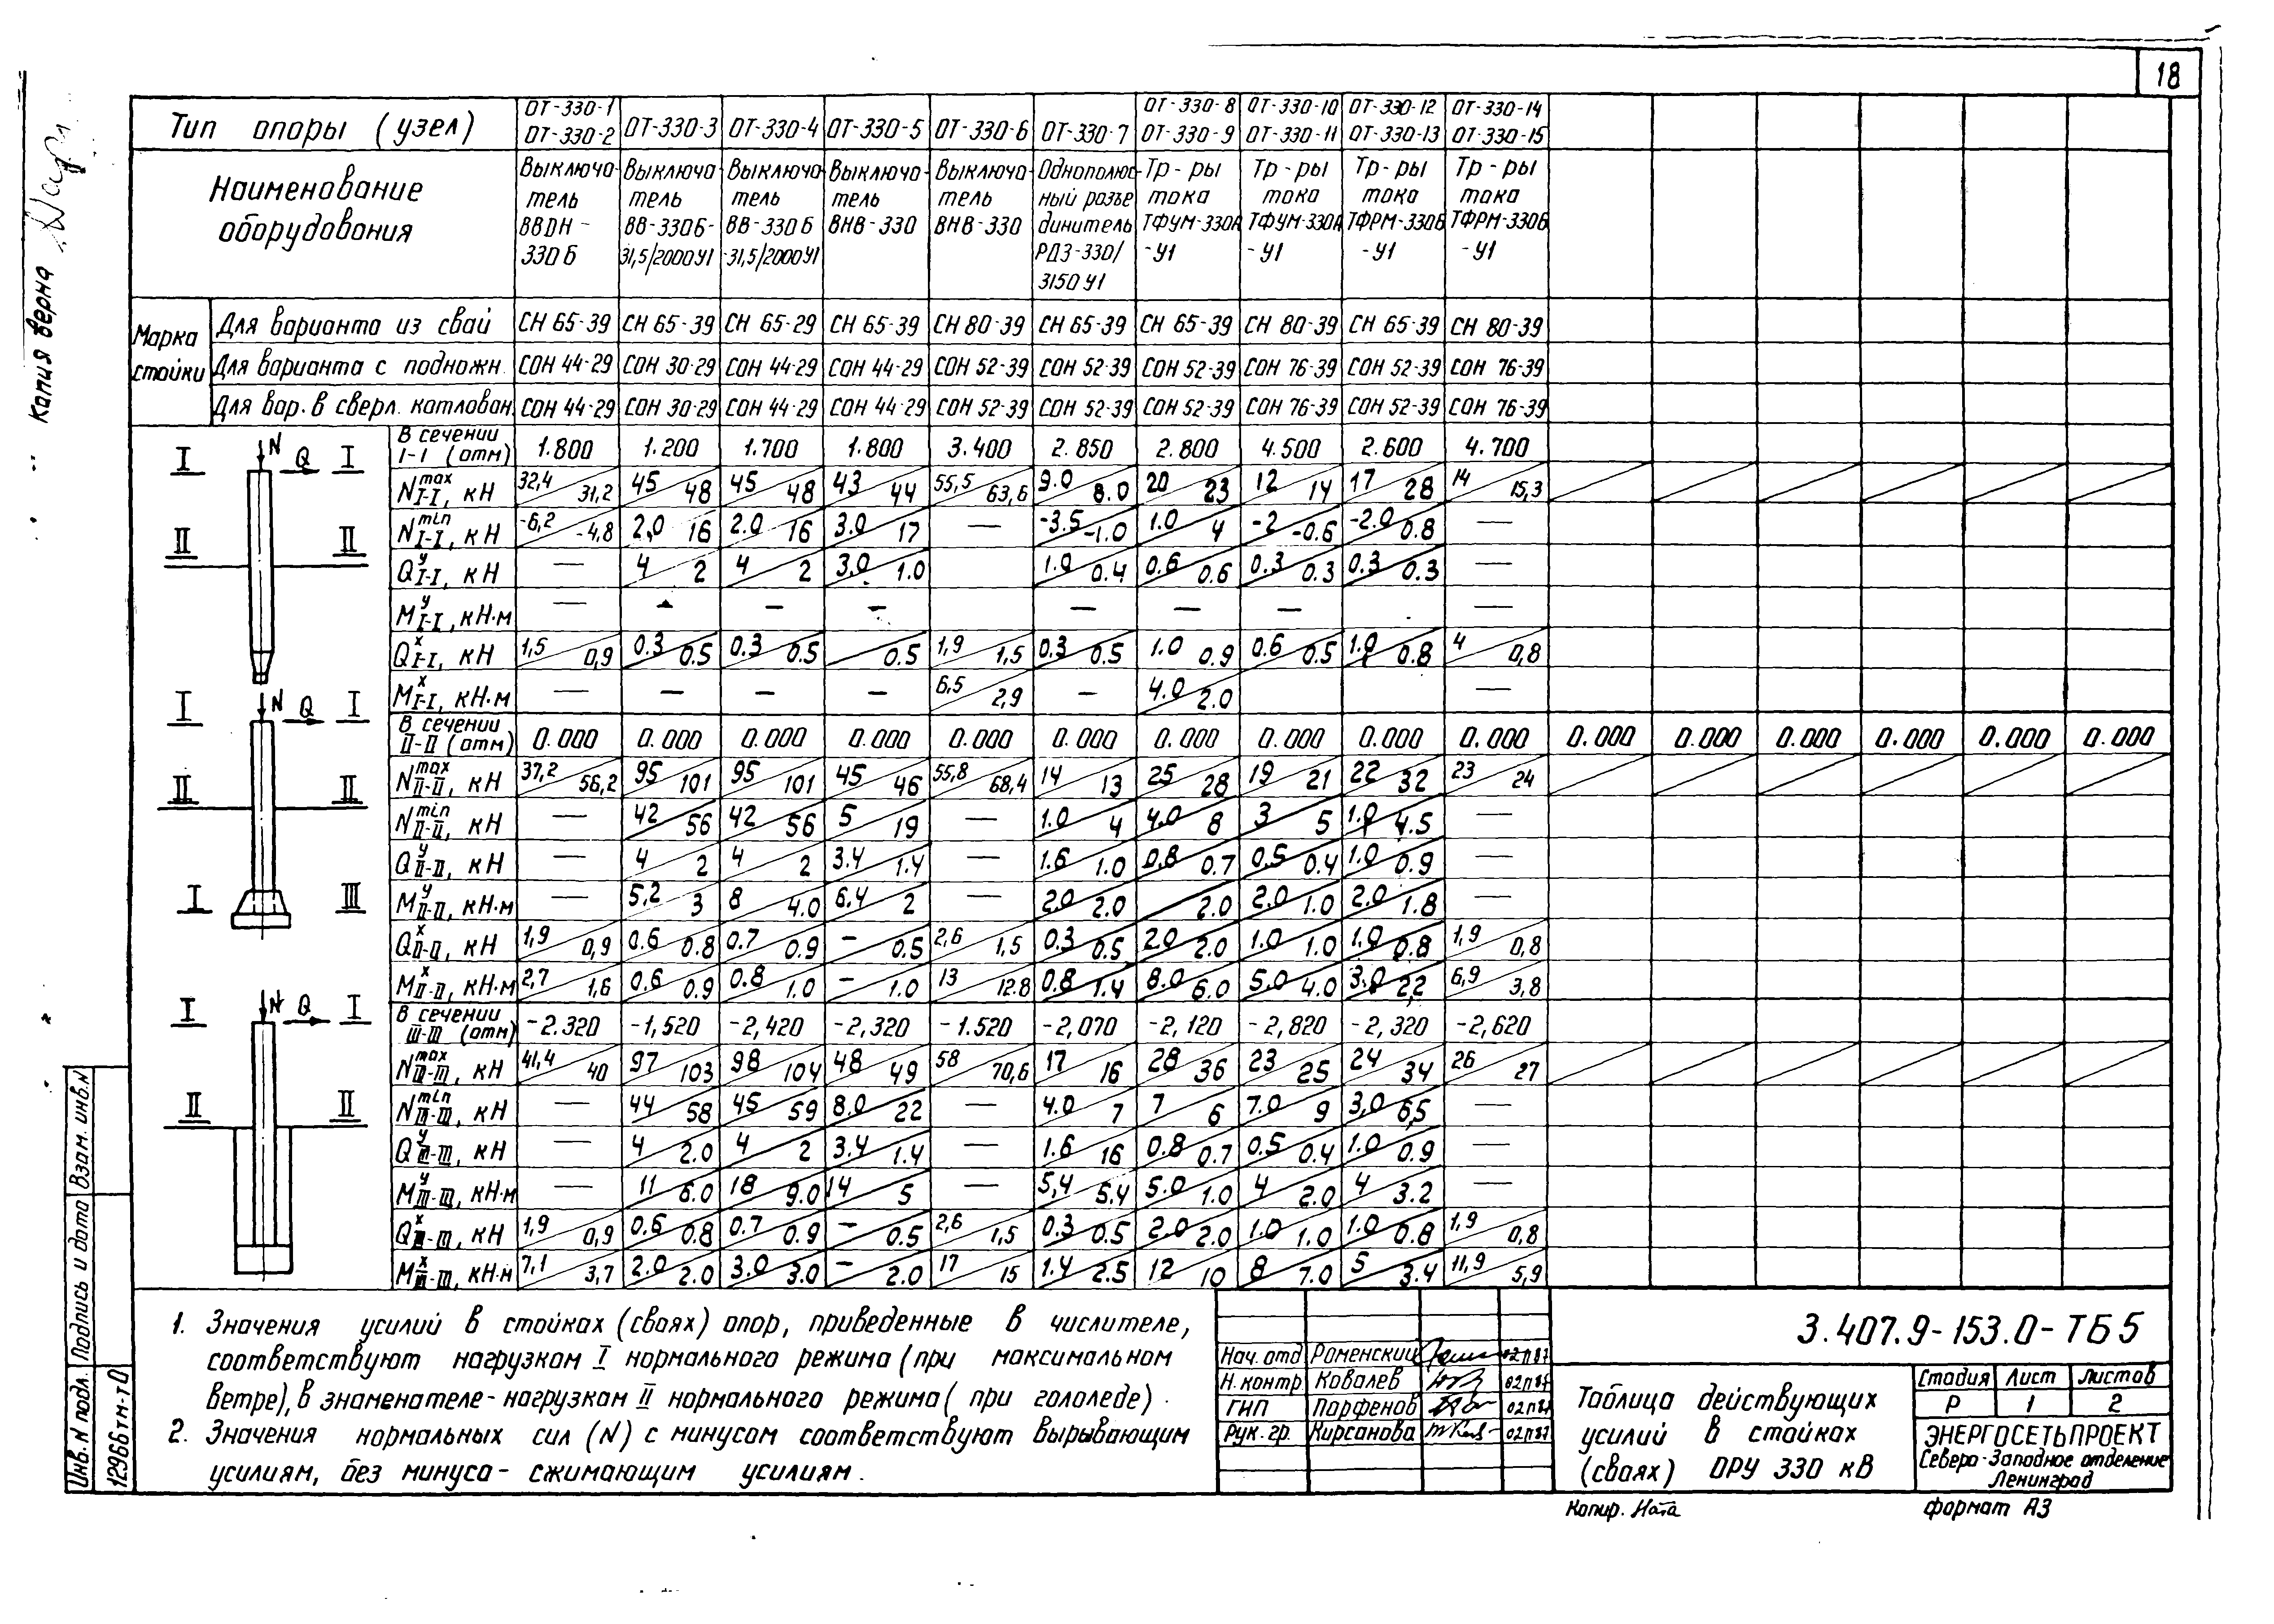 18
Копия верна
Тип опоры (узел) ОТ-330-1 ОТ-330-2 ОТ-330-3 ОТ-330-4 ОТ-330-5 ОТ-330-6 ОТ-330-7 ОТ-330-8 ОТ-330-9 ОТ-330-10 ОТ-330-11 ОТ-330-12 ОТ-330-13 ОТ-330-14 ОТ-330-15
Наименование оборудования
Выключатель ВВДН-330 Б
Выключатель ВВ-330Б-31,5/2000 У1
Выключатель ВВ-330 Б-31,5/2000 У1
Выключатель ВНВ-330
Выключатель ВНВ-330
Однополюсный разъединитель РДЗ-330/3150 У1
Тр-ры тока ТФУМ-330А-У1
Тр-ры тока ТФУМ-330А-У1
Тр-ры тока ТФРМ-330Б-У1
Тр-ры тока ТФРМ-330Б-У1
Марка стойки
Для варианта из свай СН 65-39 СН 65-39 СН 65-29 СН 65-39 СН 80-39 СН 65-39 СН 65-39 СН 80-39 СН 65-39 СН 80-39
Для варианта с подножн. СОН 44-29 СОН 30-29 СОН 44-29 СОН 44-29 СОН 52-39 СОН 52-39 СОН 52-39 СОН 76-39 СОН 52-39 СОН 76-39
Для вар. в сверл. котлован СОН 44-29 СОН 30-29 СОН 44-29 СОН 44-29 СОН 52-39 СОН 52-39 СОН 52-39 СОН 76-39 СОН 52-39 СОН 76-39
В сечении I-I (отм) 1.800 1.200 1.700 1.800 3.400 2.850 2.800 4.500 2.600 4.700
N max I-I, кН 32,4/31,2 45/48 45/48 43/44 55,5/63,6 9.0/8.0 20/23 12/14 17/28 14/15,3
N min I-I, кН -6,2/-4,8 2,0/16 2.0/16 3.0/17 — -3.5/-1.0 1.0/4 -2/-0.6 -2.0/0.8 —
Q у I-I, кН — 4/2 4/2 3.0/1.0 1.0/0.4 0.6/0.6 0.3/0.3 0.3/0.3 —
M у I-I, кН·м — — — — — — — —
Q х I-I, кН 1,5/0,9 0.3/0.5 0.3/0.5 /0.5 1,9/1,5 0.3/0.5 1.0 0.9 0.6/0.5 1.0/0.8 4/0,8
M х I-I, кН·м — — — — 6,5/2,9 — 4.0/2.0 —
В сечении II-II (отм) 0.000 0.000 0.000 0.000 0.000 0.000 0.000 0.000 0.000 0.000 0.000 0.000 0.000 0.000 0.000 0.000
N max II-II, кН 37,2/56,2 95/101 95/101 45/46 55,8/68,4 14/13 25/28 19/21 22/32 23/24
N min II-II, кН — 42/56 42/56 5/19 — 1.0/4 4.0/8 3/5 1.0/4.5 —
Q у II-II, кН — 4/2 4/2 3.4/1.4 — 1.6/1.0 0.8/0.7 0.5/0.4 1.0/0.9 —
M у II-II, кН·м — 5,2/3 8/4.0 6.4/2 — 2.0/2.0 /2.0 2.0/1.0 2.0/1.8 —
Q х II-II, кН 1,9/0,9 0.6/0.8 0.7/0.9 —/0.5 2,6/1,5 0.3/0.5 2.0/2.0 1.0/1.0 1.0/0.8 1,9/0,8
M х II-II, кН·м 2,7/1,6 0.6/0.9 0.8/1.0 —/1.0 13/12.8 0.8/1.4 8.0/6.0 5.0/4.0 3.0/2,2 6,9/3,8
В сечении III-III (отм) -2.320 -1,520 -2,420 -2,320 -1.520 -2,070 -2,120 -2,820 -2,320 -2,620
N max III-III, кН 41,4/40 97/103 98/104 48/49 58/70,6 17/16 28/36 23/25 24/34 26/27
N min III-III, кН — 44/58 45/59 8.0/22 — 4.0/7 7/6 7.0/9 3,0/6,5 —
Q у III-III, кН — 4/2.0 4/2 3.4/1.4 — 1.6/16 0.8/0.7 0.5/0.4 1.0/0.9 —
M у III-III, кН·м — 11/6.0 18/9.0 14/5 — 5,4/5.4 5.0/1.0 4/2.0 4/3.2 —
Q х III-III, кН 1,9/0,9 0.6/0.8 0.7/0.9 —/0.5 2,6/1,5 0.3/0.5 2.0/2.0 1.0/1.0 1.0/0.8 1,9/0,8
M х III-III, кН·м 7,1/3,7 2.0/2.0 3.0/3.0 —/2.0 17/15 1.4/2.5 12/10 8/7.0 5/3.4 11,9/5,9
I N Q I
II II
I N Q I
II II
I III
I N Q I
II II
1. Значения усилий в стойках (сваях) опор, приведенные в числителе,
соответствуют нагрузкам I нормального режима (при максимальном
ветре), в знаменателе - нагрузкам II нормального режима (при гололеде).
2. Значения нормальных сил (N) с минусом соответствуют вырывающим
усилиям, без минуса - сжимающим усилиям.
Нач. отд Роменский 02.II.87
Н. контр. Ковалев 02.II.87
ГИП Парфенов 02.II.87
Рук. гр. Кирсанова 02.II.87
3.407.9-153.0-ТБ5
Таблица действующих
усилий в стойках
(сваях) ОРУ 330 кВ
Стадия Лист Листов
Р 1 2
ЭНЕРГОСЕТЬПРОЕКТ
Северо-Западное отделение
Ленинград
Копир. Ната
формат А3
Взам. инв. N
Подпись и дата
Инв. N подл.
12966тм-т0